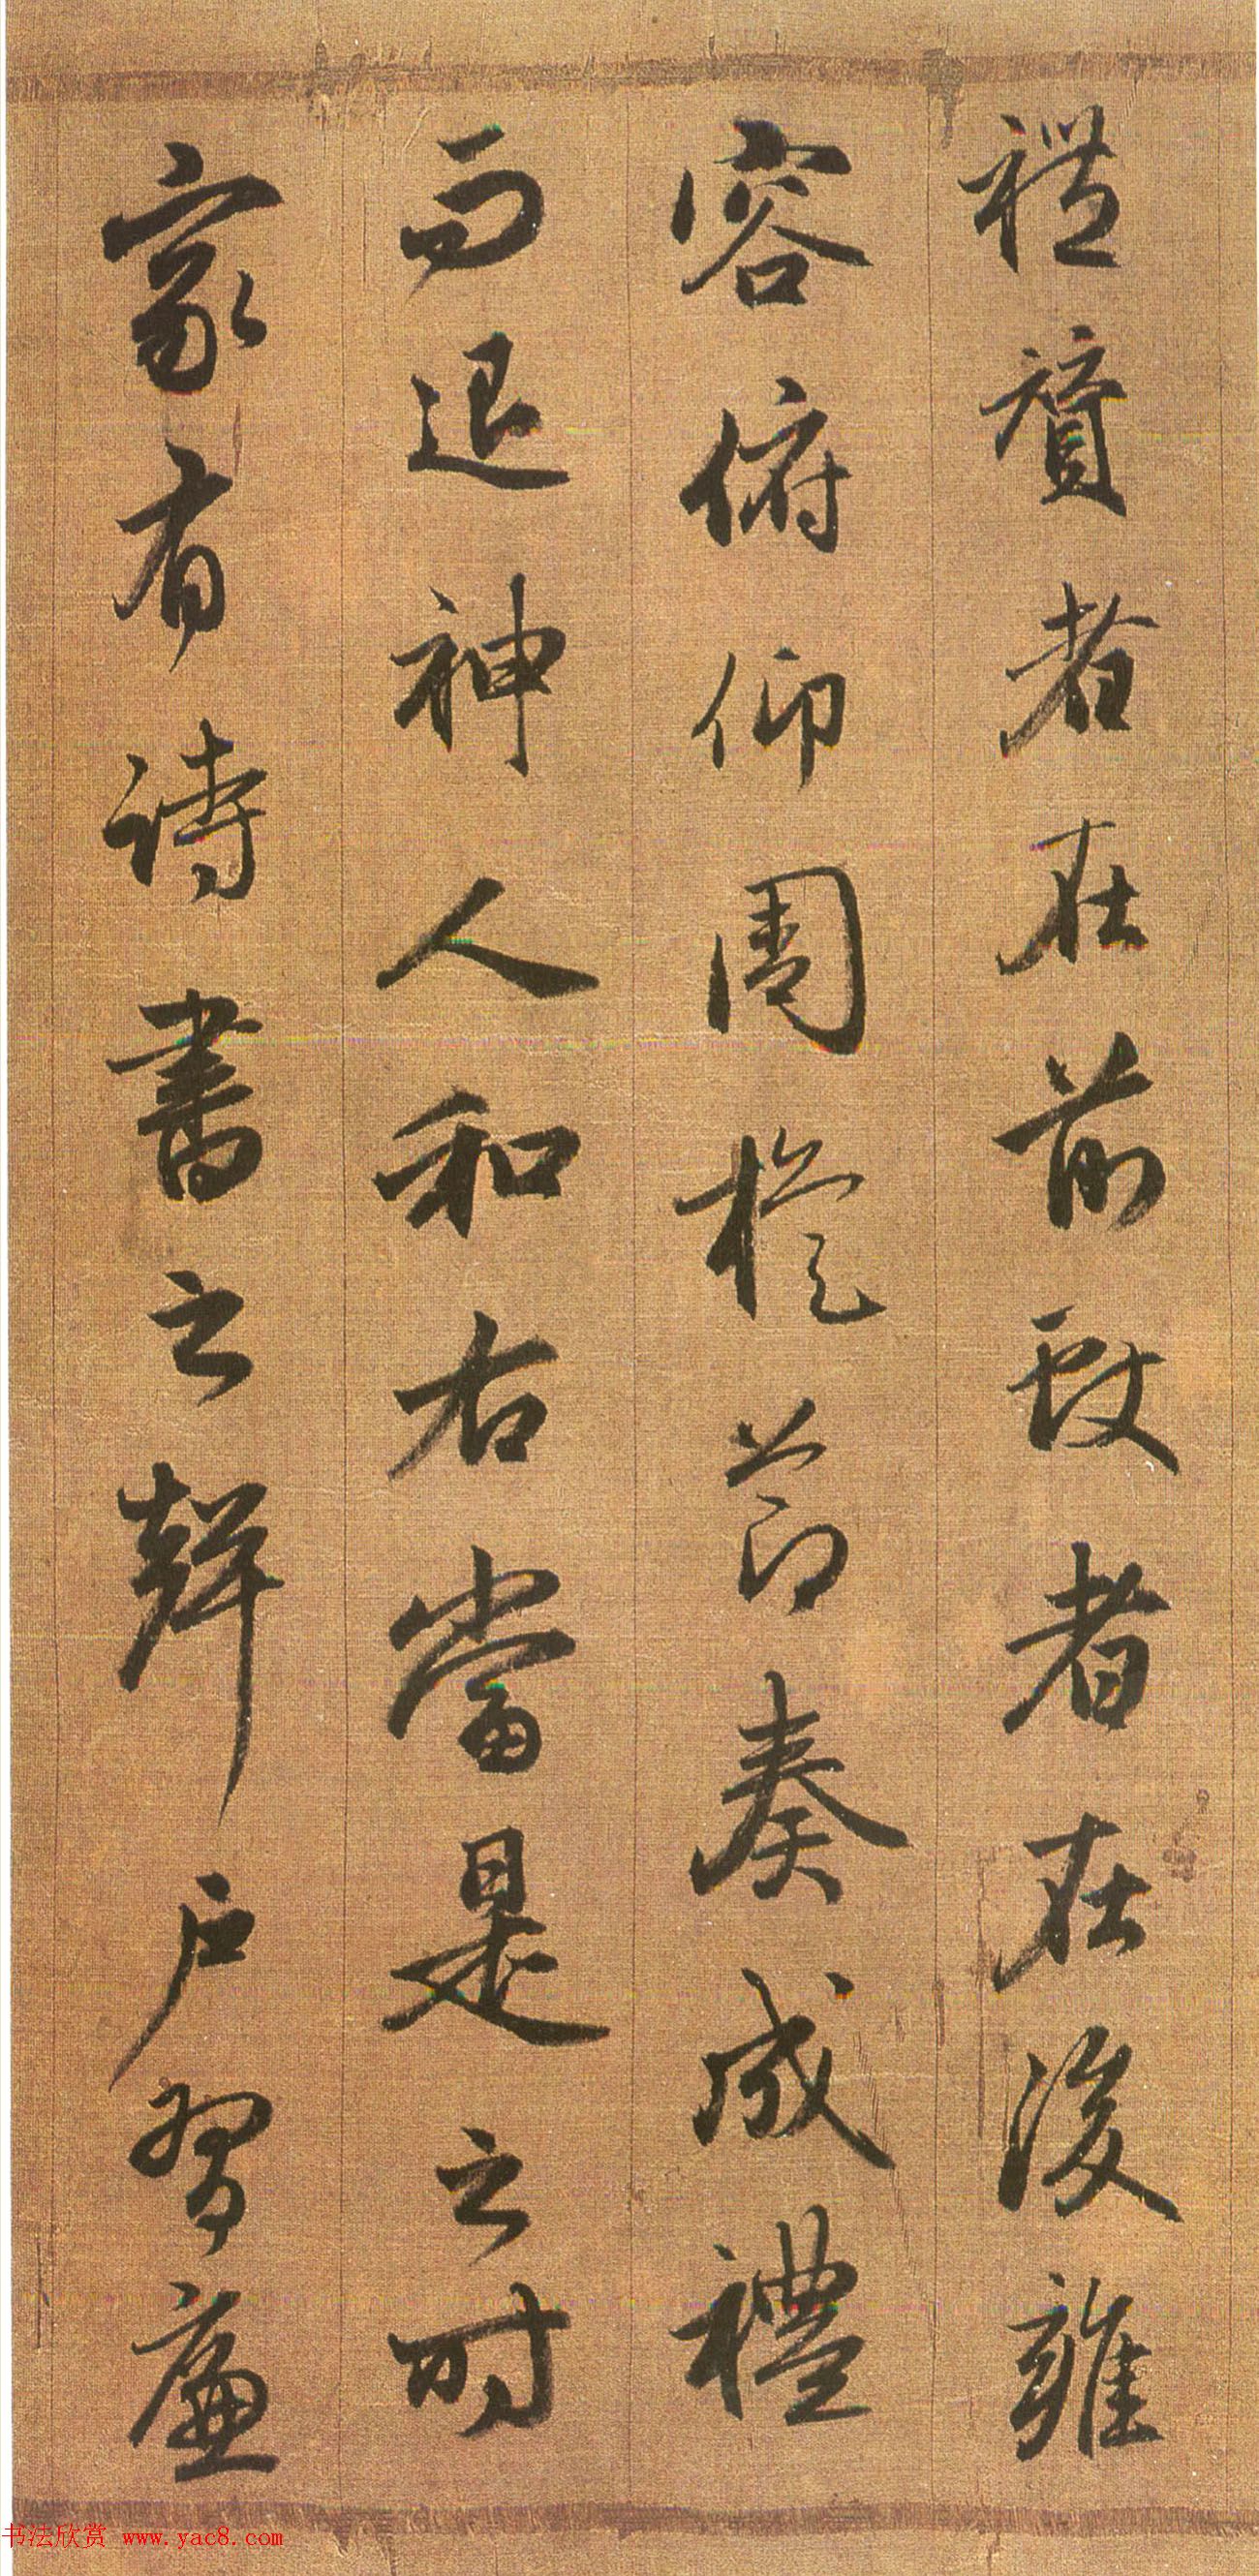 禮贊者在前致者在後雍
容俯仰周旋節奏成禮
而退神人和右當是之時
家有詩書之聲戶習廉
书法欣赏 www.yac8.com